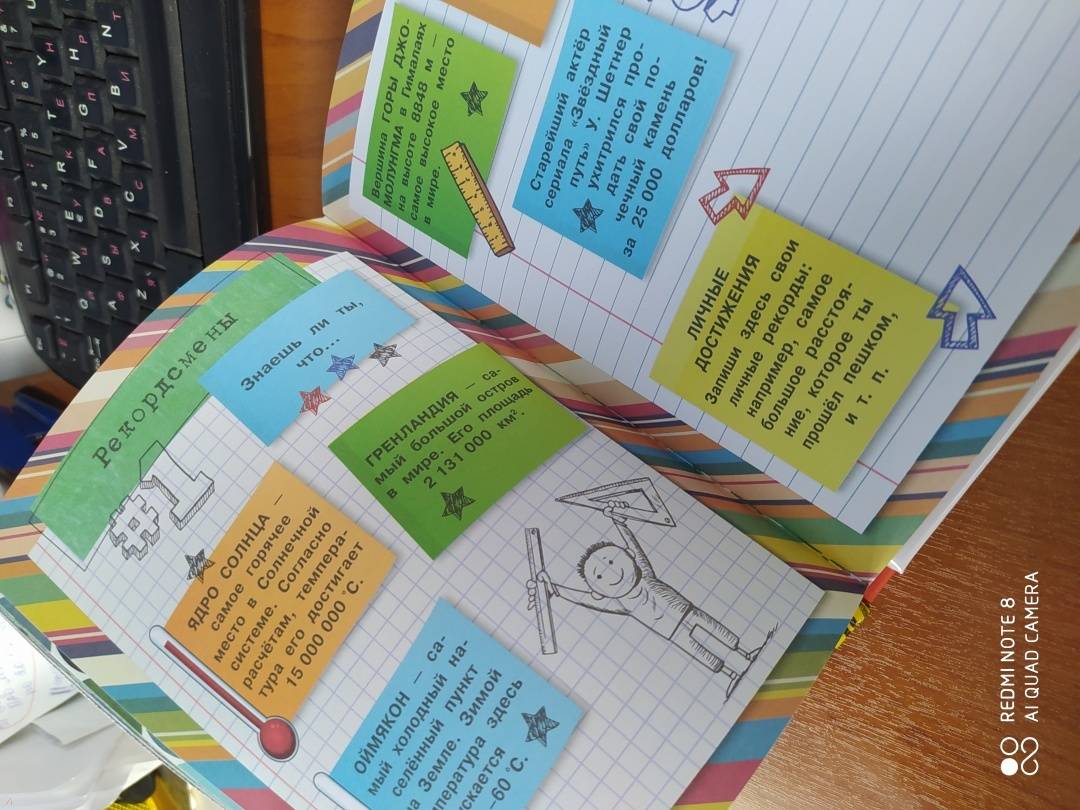 Рекордсмены
#1
Знаешь ли ты,
что...
ЯДРО СОЛНЦА –
самое горячее
место в Солнечной
системе. Согласно
расчётам, темпера-
тура его достигает
15 000 000 °С.
ГРЕНЛАНДИЯ – са-
мый большой остров
в мире. Его площадь
2 131 000 км².
ОЙМЯКОН – са-
мый холодный на-
селённый пункт
на Земле. Зимой
температура здесь
–60 °С.
Вершина ГОРЫ ДЖО-
МОЛУНГМА в Гималаях
на высоте 8848 м –
самое высокое место
в мире.
Старейший актёр
сериала «Звёздный
путь» У. Шетнер
ухитрился про-
дать свой по-
чечный камень
за 25 000 долларов!
ЛИЧНЫЕ
ДОСТИЖЕНИЯ
Запиши здесь свои
личные рекорды:
например, самое
большое расстоя-
ние, которое ты
прошёл пешком,
и т. п.
REDMI NOTE 8
AI QUAD CAMERA